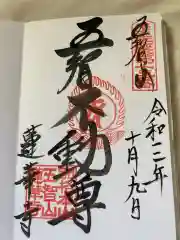 五智山
令和二年
十月九日
五智不動尊
蓮華寺